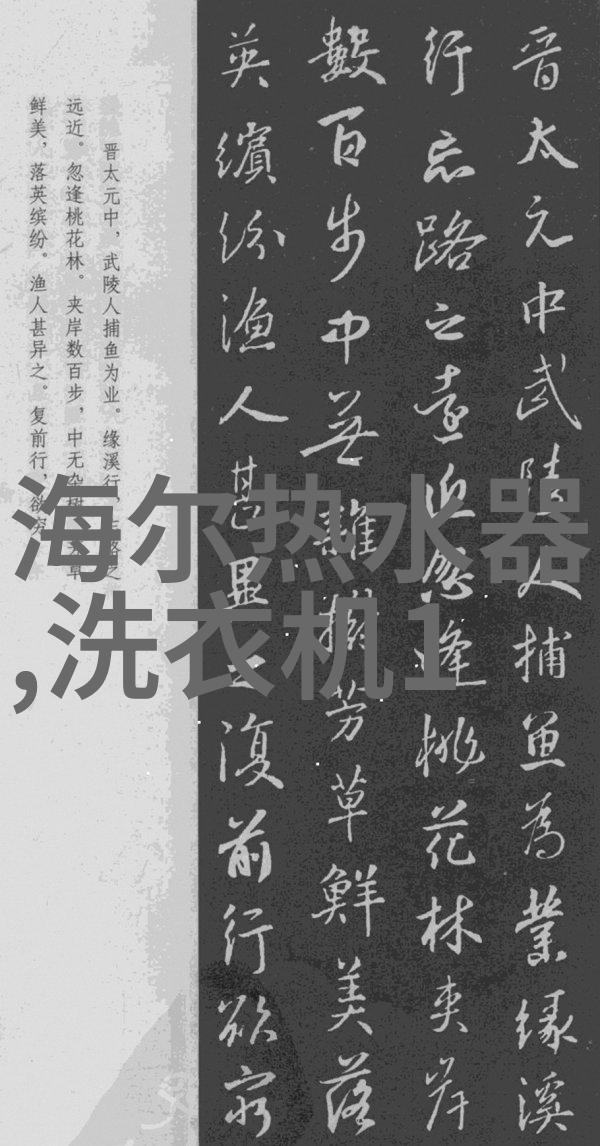 晋太元中武陵人捕鱼為業缘溪
行忘路之遠近忽逢桃花林夹岸
數百步中無雜樹芳草鮮美落
英繽紛渔人甚異之復前行欲窮
晋太元中，武陵人捕鱼为业。缘溪行，忘路之
远近。忽逢桃花林。夹岸数百步，中无杂树，芳草
鲜美，落英缤纷。渔人甚异之。复前行，欲穷
海尔热水器
,洗衣机1